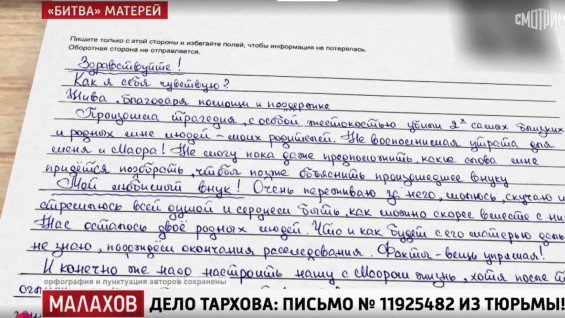 «БИТВА» МАТЕРЕЙ
СМОТРИМ
Пишите только с этой стороны и избегайте полей, чтобы информация не потерялась.
Оборотная сторона не отправляется.
Здравствуйте!
Как я себя чувствую?
Жива, благодаря помощи и поддержке
Произошла трагедия, с особой жестокостью убили 2х самых близких
и родных мне людей – моих родителей. Не восполнимая утрата для
меня и Маора! Не могу пока даже предположить, какие слова мне
придётся подобрать, чтобы позже объяснить произошедшее внуку
Мой любимый внук! Очень переживаю за него, молюсь, скучаю и
стремлюсь всей душой и сердцем быть, как можно скорее вместе с ни
Нас осталось двое родных людей. Что и как будет с его матерью даль
не знаю, подождём окончания расследования. Факты – вещь упрямая!
И конечно же надо настроить нашу с Маором жизнь, хотя после т
орфография и пунктуация авторов сохранены
МАЛАХОВ
ДЕЛО ТАРХОВА: ПИСЬМО № 11925482 ИЗ ТЮРЬМЫ!